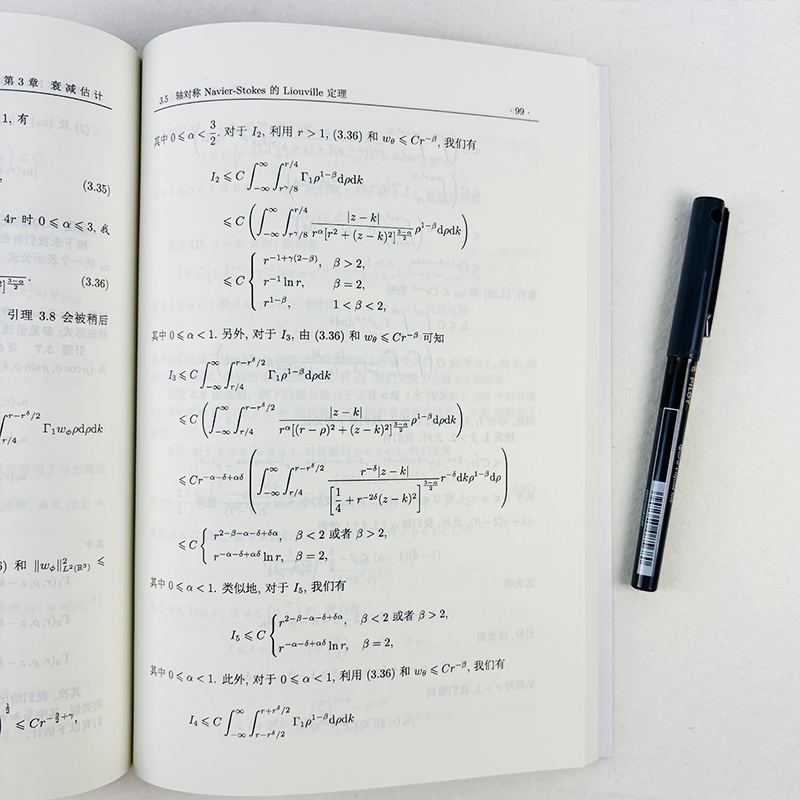 第 3 章 衰减估计
1, 有
(3.35)
4r 时 0 ⩽ α ⩽ 3, 我
(3.36)
引理 3.8 会被稍后
∫_{r/4}^{r−r^δ/2} Γ₁w_ϕρdρdk
) 和 ‖w_ϕ‖²_{L²(ℝ³)} ⩽
⩽ Cr^{−β/2+γ},
3.5 轴对称 Navier-Stokes 的 Liouville 定理 · 99 ·
其中 0 ⩽ α < 3/2. 对于 I₂, 利用 r > 1, (3.36) 和 w_θ ⩽ Cr^{−β}, 我们有
I₂ ⩽ C ∫_{−∞}^{∞} ∫_{r^γ/8}^{r/4} Γ₁ρ^{1−β}dρdk
⩽ C ( ∫_{−∞}^{∞} ∫_{r^γ/8}^{r/4} |z − k| / (r^α[r² + (z − k)²]^{(3−α)/2}) ρ^{1−β}dρdk )
⩽ C { r^{−1+γ(2−β)}, β > 2,
r^{−1} ln r, β = 2,
r^{1−β}, 1 < β < 2,
其中 0 ⩽ α < 1. 另外, 对于 I₃, 由 (3.36) 和 w_θ ⩽ Cr^{−β} 可知
I₃ ⩽ C ∫_{−∞}^{∞} ∫_{r/4}^{r−r^δ/2} Γ₁ρ^{1−β}dρdk
⩽ C ( ∫_{−∞}^{∞} ∫_{r/4}^{r−r^δ/2} |z − k| / (r^α[(r − ρ)² + (z − k)²]^{(3−α)/2}) ρ^{1−β}dρdk )
⩽ Cr^{−α−δ+αδ} ( ∫_{−∞}^{∞} ∫_{r/4}^{r−r^δ/2} r^{−δ}|z − k| / [1/4 + r^{−2δ}(z − k)²]^{(3−α)/2} r^{−δ}dkρ^{1−β}dρ )
⩽ C { r^{2−β−α−δ+δα}, β < 2 或者 β > 2,
r^{−α−δ+αδ} ln r, β = 2,
其中 0 ⩽ α < 1. 类似地, 对于 I₅, 我们有
I₅ ⩽ C { r^{2−β−α−δ+δα}, β < 2 或者 β > 2,
r^{−α−δ+αδ} ln r, β = 2,
其中 0 ⩽ α < 1. 此外, 对于 0 ⩽ α < 1, 利用 (3.36) 和 w_θ ⩽ Cr^{−β}, 我们有
I₄ ⩽ C ∫_{−∞}^{∞} ∫_{r−r^δ/2}^{r+r^δ/2} Γ₁ρ^{1−β}dρdk
PILOT